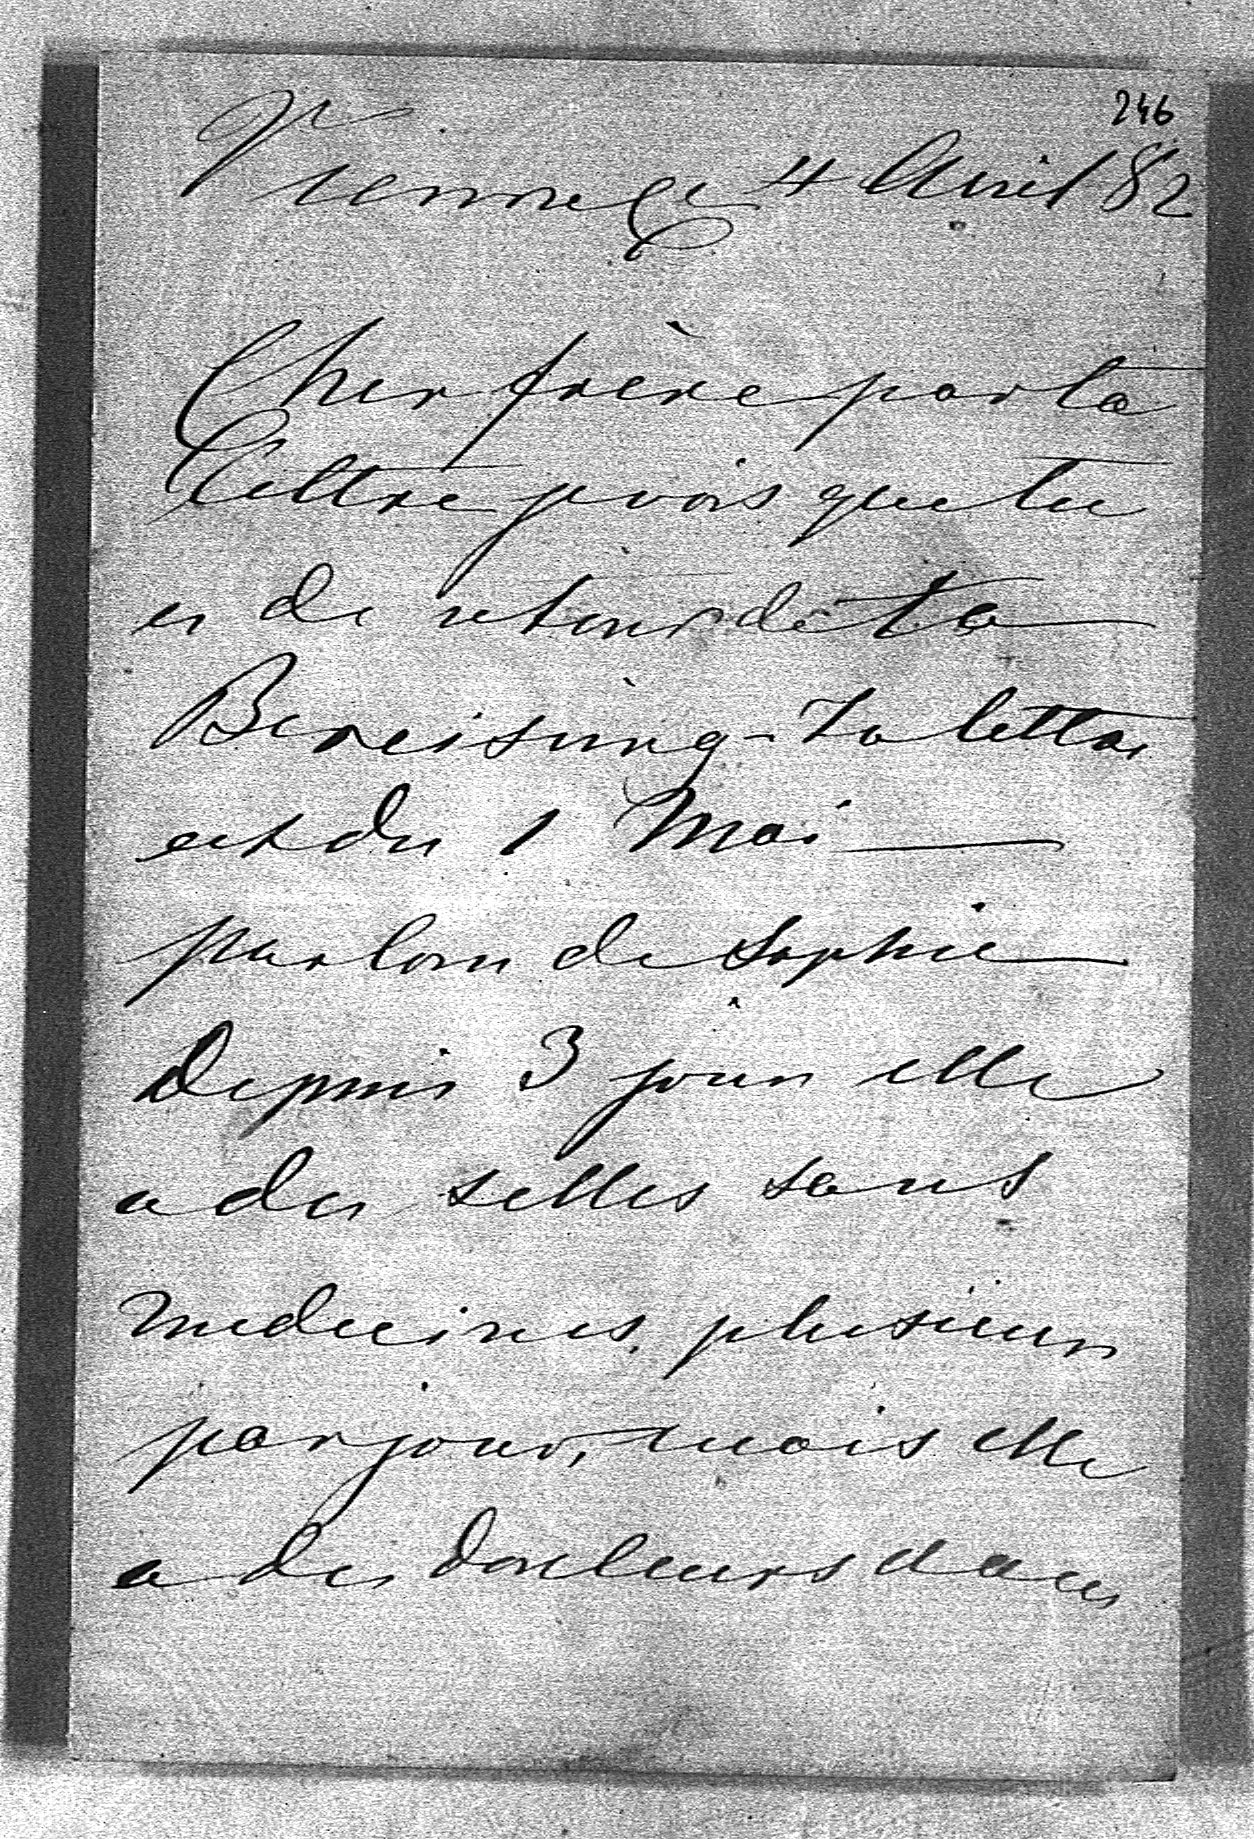 246
Vienne Ce 4 Avril 82
Cher frère par ta
lettre je vois que tu
es de retour de ta
Bereisung - ta lettre
est du 1 Mai
parlons de Sophie
Depuis 3 jours elle
a des selles sans
medecines, plusieurs
par jour, mais elle
a des douleurs dans